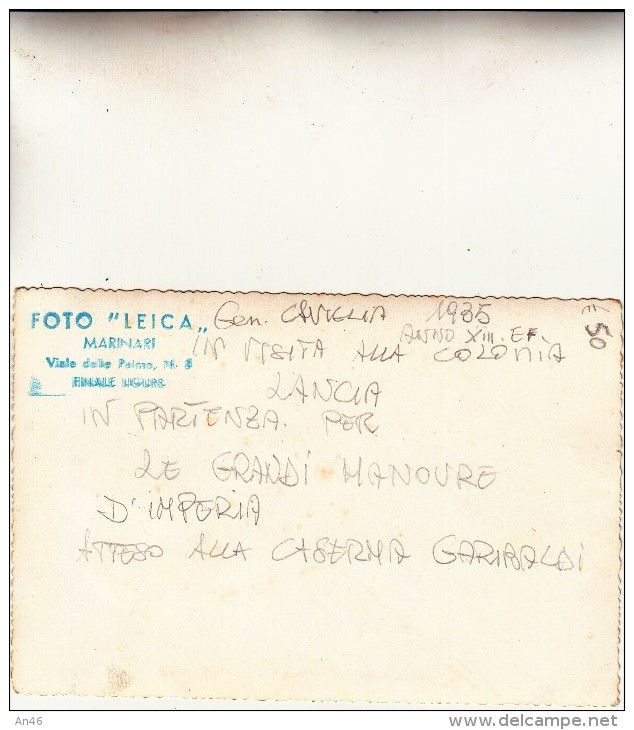 FOTO "LEICA„
MARINARI
Viale delle Palme, N. 8
FINALE LIGURE
Gen. CAVIGLIA 1935
ANNO XIII. E.F.
€ 50
IN VISITA ALLA COLONIA
LANCIA
IN PARTENZA. PER
LE GRANDI MANOVRE
D'IMPERIA
ATTESO ALLA CASERMA GARIBALDI
An46
www.delcampe.net